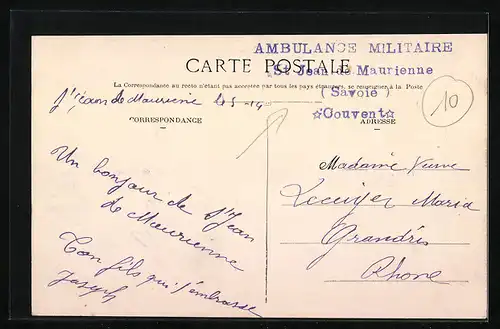 AMBULANCE MILITAIRE
CARTE POSTALE
St Jean de Maurienne
La Correspondance au recto n'étant pas acceptée par tous les pays étrangers, se renseigner à la Poste
(Savoie)
☆Couvent☆
10
St Jean de Maurienne
CORRESPONDANCE
ADRESSE
Un bonjour de St Jean
de Maurienne
Ton fils qui t'embrasse
Joseph
Madame Veuve
Maria
Grandris
Rhone